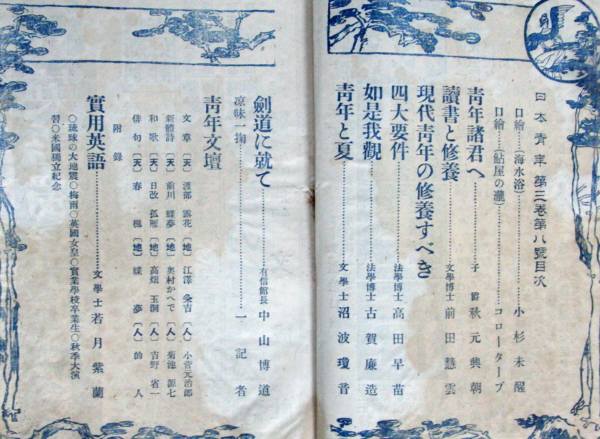 日本青年第三卷第八號目次
口繪……(海水浴)……小杉未醒
口繪……(鮎屋の瀧)……コロータープ
青年諸君へ……子爵 秋元興朝
讀書と修養……文學博士 前田慧雲
現代青年の修養すべき
四大要件……法學博士 高田早苗
如是我觀……法學博士 古賀廉造
青年と夏……文學士 沼波瓊音
劍道に就て……有信館長 中山博道
凉味一掬……一記者
青年文壇
文章〔天〕渡部露花〔地〕江澤 〔人〕小菅元治郎
新體詩〔天〕前川蝶夢〔地〕奥村かへで〔人〕菊池源七
和歌〔天〕日改孤雁〔地〕高畑玉測〔人〕吉野省一
俳句〔天〕春楓〔地〕蝶夢〔人〕的人
附錄
實用英語……文學士 若月紫蘭
○琉球の大地震○梅雨○英國女皇○實業學校卒業生○秋季大演
習○米國獨立紀念